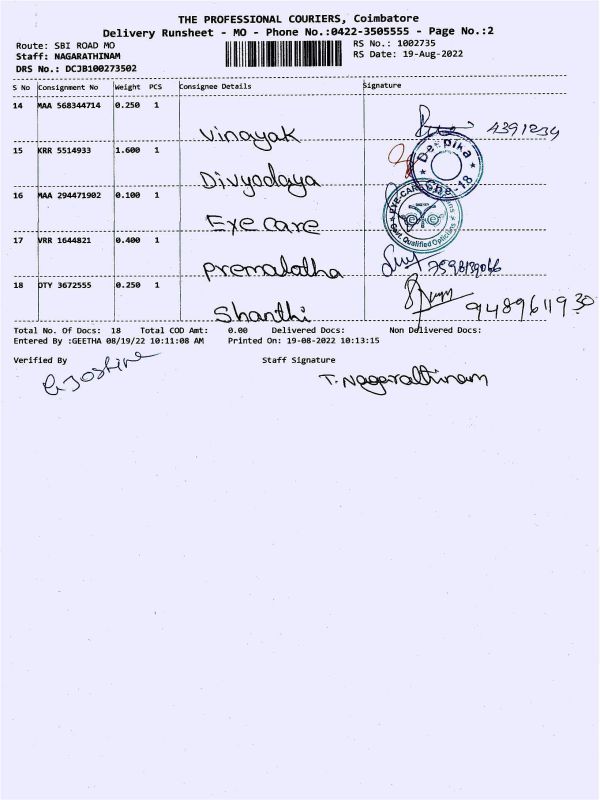 THE PROFESSIONAL COURIERS, Coimbatore
Delivery Runsheet - MO - Phone No.:0422-3505555 - Page No.:2
Route: SBI ROAD MO
RS No.: 1002735
Staff: NAGARATHINAM
RS Date: 19-Aug-2022
DRS No.: DCJB100273502
S No Consignment No Weight PCS Consignee Details Signature
14 MAA 568344714 0.250 1
Vinayak 4391234
15 KRR 5514933 1.600 1
Deepika
Che-18
Divyodaya
16 MAA 294471902 0.100 1
EYE-CARE
Govt. Qualified Opticians
Eye care
17 VRR 1644821 0.400 1
Premalatha 7598139066
18 DTY 3672555 0.250 1
Shanthi 9489611930
Total No. Of Docs: 18 Total COD Amt: 0.00 Delivered Docs: Non Delivered Docs:
Entered By :GEETHA 08/19/22 10:11:08 AM Printed On: 19-08-2022 10:13:15
Verified By Staff Signature
T. Nagarathinam